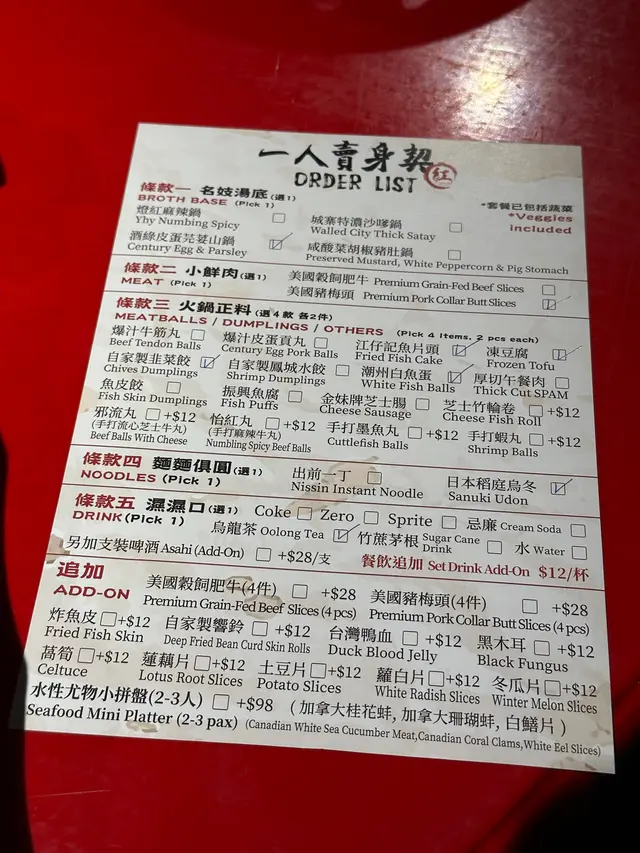 一人賣身契
ORDER LIST
紅
條款一 名妓湯底(選1)
BROTH BASE (Pick 1)
*套餐已包括蔬菜
*Veggies included
燈紅麻辣鍋
Yhy Numbing Spicy
城寨特濃沙嗲鍋
Walled City Thick Satay
酒綠皮蛋芫荽山鍋
Century Egg & Parsley
咸酸菜胡椒豬肚鍋
Preserved Mustard, White Peppercorn & Pig Stomach
條款二 小鮮肉(選1)
MEAT (Pick 1)
美國穀飼肥牛 Premium Grain-Fed Beef Slices
美國豬梅頭 Premium Pork Collar Butt Slices
條款三 火鍋正料(選4款 各2件)
MEATBALLS / DUMPLINGS / OTHERS (Pick 4 Items, 2 pcs each)
爆汁牛筋丸 爆汁皮蛋貢丸 江仔記魚片頭 凍豆腐
Beef Tendon Balls Century Egg Pork Balls Fried Fish Cake Frozen Tofu
自家製韭菜餃 自家製鳳城水餃 潮州白魚蛋 厚切午餐肉
Chives Dumplings Shrimp Dumplings White Fish Balls Thick Cut SPAM
魚皮餃 振興魚腐 金妹牌芝士腸 芝士竹輪卷 +$12
Fish Skin Dumplings Fish Puffs Cheese Sausage Cheese Fish Roll
邪流丸 +$12 怡紅丸 +$12 手打墨魚丸 +$12 手打蝦丸 +$12
(手打流心芝士牛丸) (手打麻辣牛丸) Cuttlefish Balls Shrimp Balls
Beef Balls With Cheese Numbing Spicy Beef Balls
條款四 麵麵俱圓(選1)
NOODLES (Pick 1)
出前一丁
Nissin Instant Noodle
日本稻庭烏冬
Sanuki Udon
條款五 濕濕口(選1)
DRINK(Pick 1)
Coke Zero Sprite 忌廉 Cream Soda
烏龍茶 Oolong Tea 竹蔗茅根 Sugar Cane Drink 水 Water
另加支裝啤酒 Asahi (Add-On) +$28/支
餐飲追加 Set Drink Add-On $12/杯
追加
ADD-ON
美國穀飼肥牛(4件) +$28
Premium Grain-Fed Beef Slices (4 pcs)
美國豬梅頭(4件) +$28
Premium Pork Collar Butt Slices (4 pcs)
炸魚皮 +$12 自家製響鈴 +$12 台灣鴨血 +$12 黑木耳 +$12
Fried Fish Skin Deep Fried Bean Curd Skin Rolls Duck Blood Jelly Black Fungus
萵筍 +$12 蓮藕片 +$12 土豆片 +$12 蘿白片 +$12 冬瓜片 +$12
Celtuce Lotus Root Slices Potato Slices White Radish Slices Winter Melon Slices
水性尤物小拼盤(2-3人) +$98 (加拿大桂花蚌, 加拿大珊瑚蚌, 白鱔片)
Seafood Mini Platter (2-3 pax) (Canadian White Sea Cucumber Meat,Canadian Coral Clams,White Eel Slices)